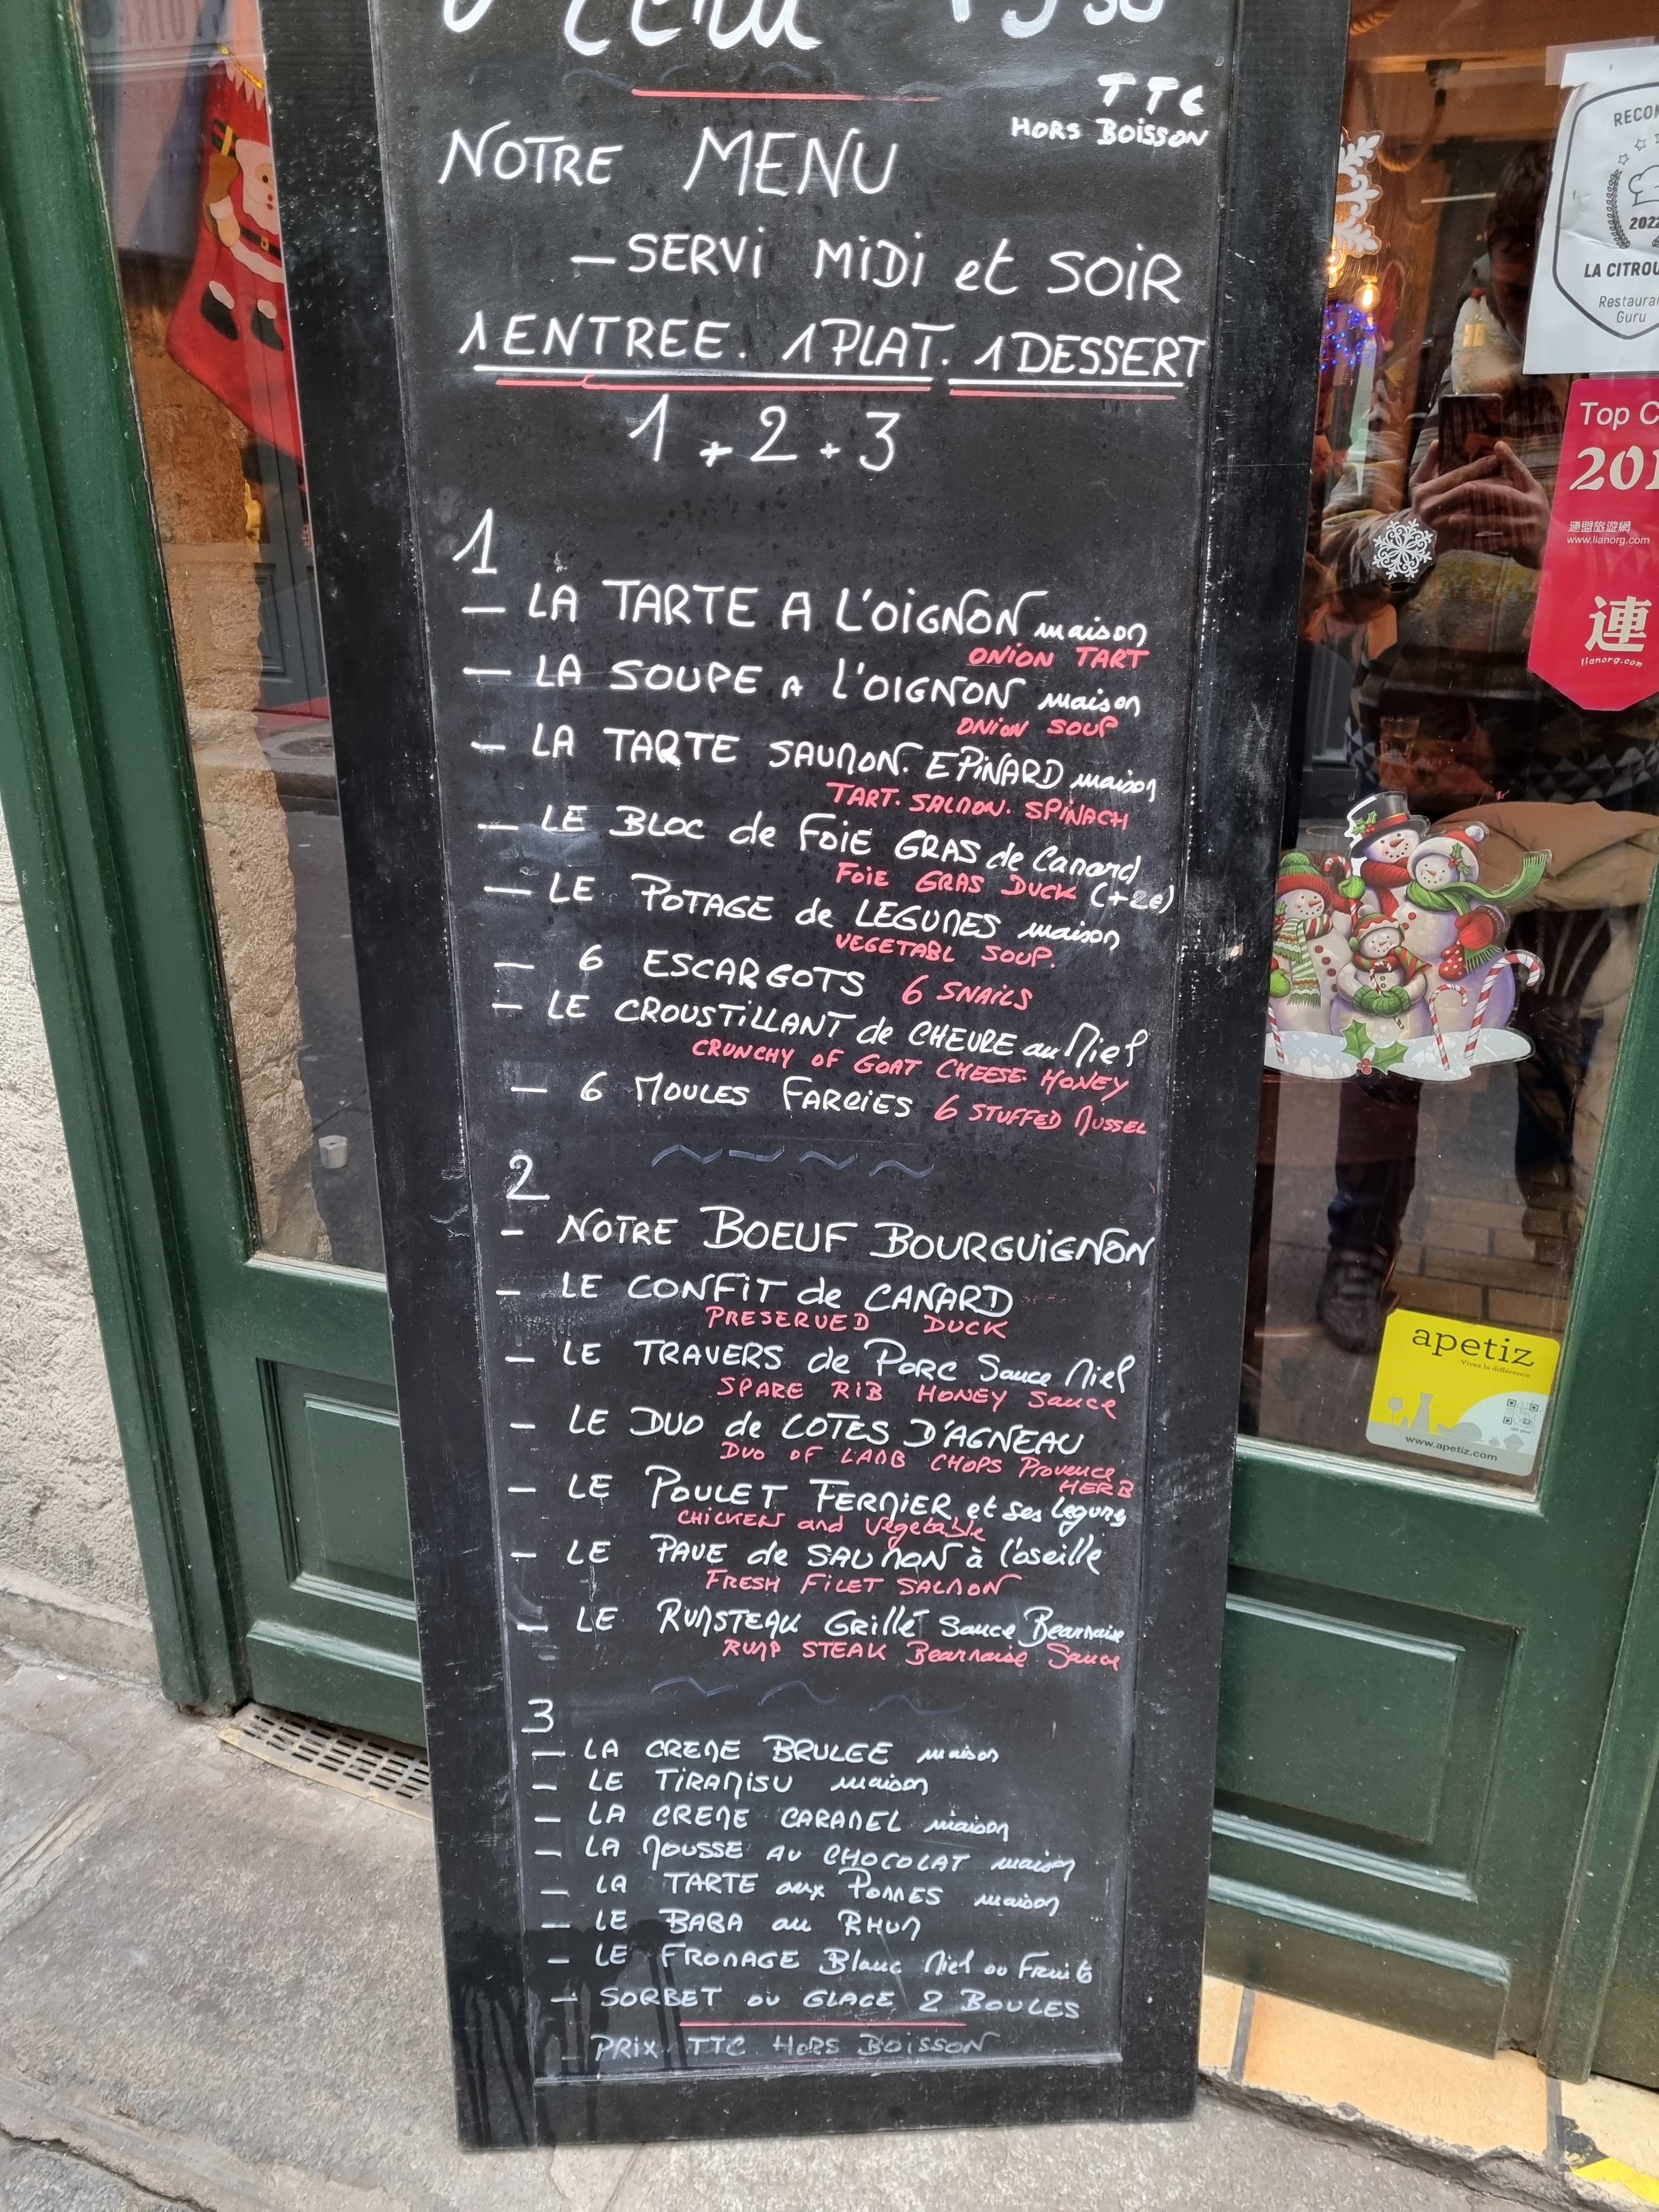 Menu
TTC
HORS BOISSON
NOTRE MENU
— SERVI MIDI et SOIR
1 ENTREE. 1 PLAT. 1 DESSERT
1 + 2 + 3
1
— LA TARTE A L'OIGNON maison
ONION TART
— LA SOUPE A L'OIGNON maison
ONION SOUP
— LA TARTE SAUMON. EPINARD maison
TART. SALMON. SPINACH
— LE BLOC de FOIE GRAS de Canard
FOIE GRAS DUCK (+2€)
— LE POTAGE de LEGUMES maison
VEGETABL SOUP.
— 6 ESCARGOTS 6 SNAILS
— LE CROUSTILLANT de CHEVRE au Miel
CRUNCHY OF GOAT CHEESE. HONEY
— 6 MOULES FARCIES 6 STUFFED MUSSEL
2
- NOTRE BOEUF BOURGUIGNON
— LE CONFIT de CANARD
PRESERVED DUCK
— LE TRAVERS de PORC Sauce Miel
SPARE RIB HONEY Sauce
— LE DUO de COTES D'AGNEAU
DUO OF LAMB CHOPS Provence
HERB
— LE POULET FERMIER et ses Legums
CHICKEN and Vegetable
— LE PAVE de SAUMON à l'oseille
FRESH FILET SALMON
— LE RUMSTEAK Grillé Sauce Bearnaise
RUMP STEAK Bearnaise Sauce
3
— LA CREME BRULEE maison
— LE TIRAMISU maison
— LA CREME CARAMEL maison
— LA MOUSSE AU CHOCOLAT maison
— LA TARTE aux POMMES maison
— LE BABA au RHUM
— LE FROMAGE Blanc Miel ou Fruits
— SORBET OU GLACE 2 BOULES
- PRIX TTC HORS BOISSON
2022
Restaurant
Guru
Top
連盟旅遊網
www.lianorg.com
連
lianorg.com
apetiz
Vivez la différence
www.apetiz.com